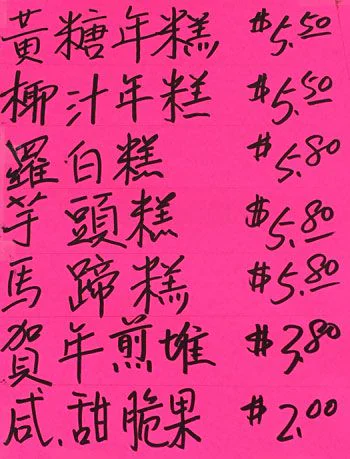 黃糖年糕 $5.50
椰汁年糕 $5.50
羅白糕 $5.80
芋頭糕 $5.80
馬蹄糕 $5.80
賀年煎堆 $3.80
咸.甜脆果 $2.00